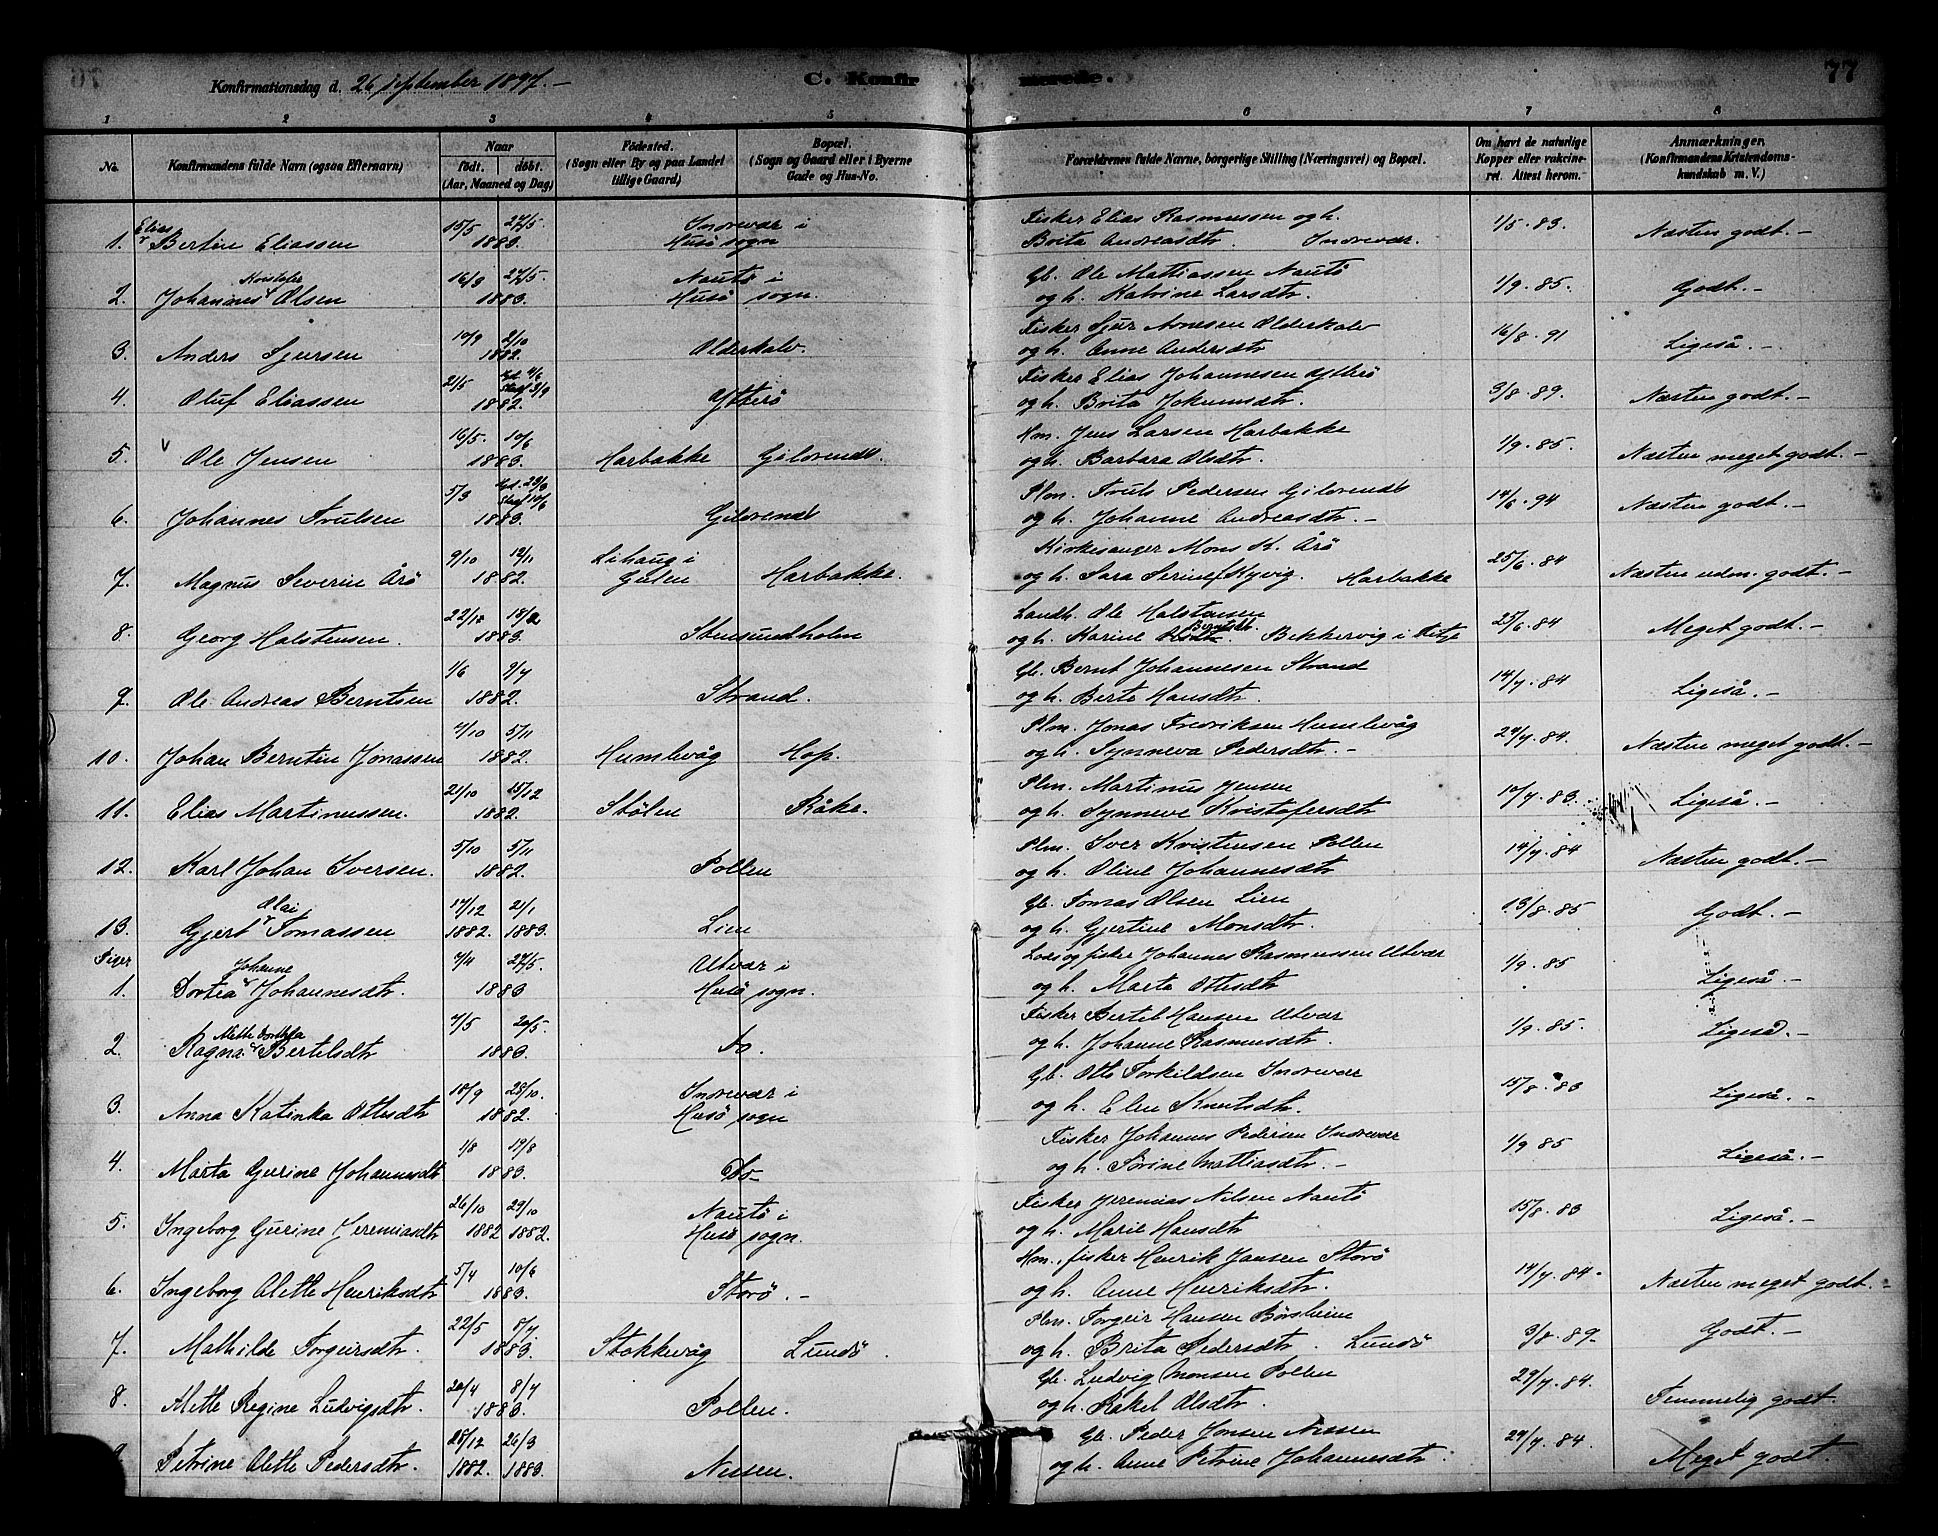 Konfirmationsdag d. 26 september 1897. –
C. Konfir merede.
77
1 2 3 4 5 6 7 8
No. Konfirmandens fulde Navn (ogsaa Efternavn) Naar født. døbt. (Aar, Maaned og Dag) Fødested. (Sogn eller By og paa Landet tillige Gaard) Bopæl. (Sogn og Gaard eller i Byerne Gade og Hus-No. Forældrenes fulde Navne, borgerlige Stilling (Næringsvei) og Bopæl. Om havt de naturlige Kopper eller vakcineret. Attest herom. Anmærkninger. (Konfirmandens Kristendomskundskab m. V.)
Elias 15/5 27/5. Indrevær i Fisker Elias Rasmussen og h. 1/5. 83.
1. Bertin Eliassen 1883. Husø sogn Brita Andreasdtr. Indrevær. Næsten godt. –
Kristofer 16/3 27/5. Nautø i Gb. Ole Mattiassen Nautø 1/9. 85.
2. Johannes Olsen 1883. Husø sogn. og h. Katrine Larsdtr. Godt. –
10/9 2/10 Fisker Sjur Arnesen Olderkalv 16/8. 91
3. Anders Sjursen 1882. Olderkalv. og h. Anne Andersdtr Ligeså. –
21/5 Hjd. 4/6 Stadf 3/9 Fisker Elias Johannesen Ytterø 3/8. 89.
4. Oluf Eliassen 1882. Ytterø og h. Brita Johannsdtr. Næsten godt. –
16/5. 10/6 Hm. Jens Larsen Harbakke 1/9. 85.
5. Ole Jensen 1883. Harbakke Gilvrende. og h. Barbara Olsdtr. Næsten meget godt. –
5/3 Hjd. 29/3 Stadf 10/6 Plm. Truls Pedersen Gilvrende 14/6. 94
6. Johannes Trulsen 1883. Gilvrende og h. Johanne Andreasdtr. – Næsten godt. –
9/10 12/11 Lihaug i Kirkesanger Mons K. Årø 25/6. 84
7. Magnus Severin Årø 1882. Gulen Harbakke. og h. Sara Serine f Kyvig. Harbakke Næsten udm. godt. –
22/12 18/2 Landh. Ole Halstensen 25/6. 84
8. Georg Halstensen. 1883. Stensundholm og h. Karine Berntsdt. Bekkervig i Fitje Meget godt. –
1/6 9/7 Gb. Bernt Johannesen Strand 14/7. 84
9. Ole Andreas Berntsen 1882. Strand. og h. Berte Hansdtr Ligeså. –
7/10 5/11 Plm. Jonas Fredriksen Humlevåg 29/7. 84.
10. Johan Berntin Jonassen 1882. Humlevåg Hop. og h. Synneva Pedersdtr. – Næsten meget godt. –
21/10 15/12 Plm. Martinus Jensen 10/7. 83.
11. Elias Martinussen. 1882. Stølen Råke. og h. Synneve Kristofersdtr Ligeså. –
5/10 5/11 Plm. Iver Kristensen Pollen 14/7. 84
12. Karl Johan Iversen. 1882. Pollen og h. Oline Johannesdtr Næsten godt. –
Olai 17/12 21/1 Gb. Tomas Olsen Lien 13/8. 85
13. Gjert Tomassen 1882. 1883. Lien og h. Gjertine Monsdtr. Godt. –
Piger Johanne 7/4 27/5. Utvær i Lods og fisker Johannes Rasmussen Utvær 1/9. 85
1. Dortea Johannesdtr. 1883 Husø sogn. og h. Marta Ottesdtr Ligeså. –
Mette Dorthea 7/5 20/5. Fisker Bertel Hansen Utvær 1/9. 85.
2. Ragna Bertelsdtr 1883. Do. og h. Johanne Rasmusdtr. Ligeså. –
18/9 28/10. Indrevær i Gb. Otte Torkildsen Indrevær 15/8. 83
3. Anna Katinka Ottesdtr 1882. Husø sogn og h. Elen Knutsdtr. Ligeså. –
1/8 19/8 Fisker Johannes Pedersen Indrevær 1/9 85
4. Marta Gurine Johannesdtr 1883. Do– og h. Sørine Mattiasdtr. – Ligeså. –
26/10 29/10 Nautø i Fisker Jeremias Nilsen Nautø 15/8. 83
5. Ingeborg Gurine Jeremiasdtr 1882 1882. Husø sogn. og h. Marie Hansdtr Ligeså. –
5/4 10/6 Hm., fisker Henrik Jansen Storø 14/7. 84.
6. Ingeborg Olette Henriksdtr 1883. Storø. – og h. Anne Henriksdtr. Næsten meget godt. –
22/5 8/7. Plm. Torgeir Hansen Børsheim 3/8. 89.
7. Mathilde Torgeirsdtr. 1883. Stokkevåg Lundø. og h. Brita Pedersdtr. Lundø Godt. –
20/4 8/7 Gb. Ludvig Monsen Pollen 29/7. 84.
8. Mette Regine Ludvigsdtr. 1883. Pollen. og h. Rakel Olsdtr. Temmelig godt.
28/12 26/3 Gb. Peder Jonsen Nessen 29/7. 84.
9 Petrine Olette Pedersdtr. 1882. 1883. Nessen. og h. Anne Petrine Johannesdtr Meget godt.